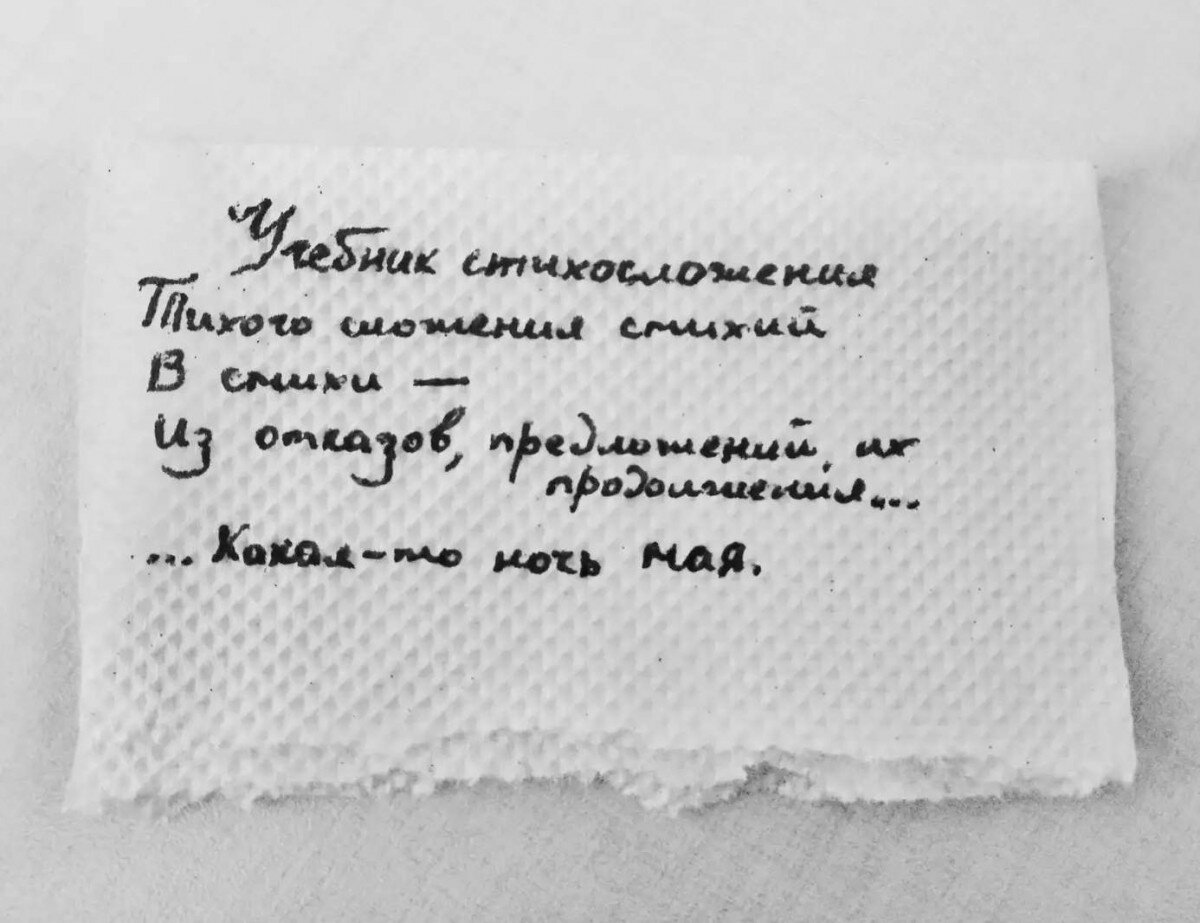 Учебник стихосложения
Тихого сложения стихий
В стихи —
Из отказов, предложений, их
продолжения...
... Какая-то ночь мая.